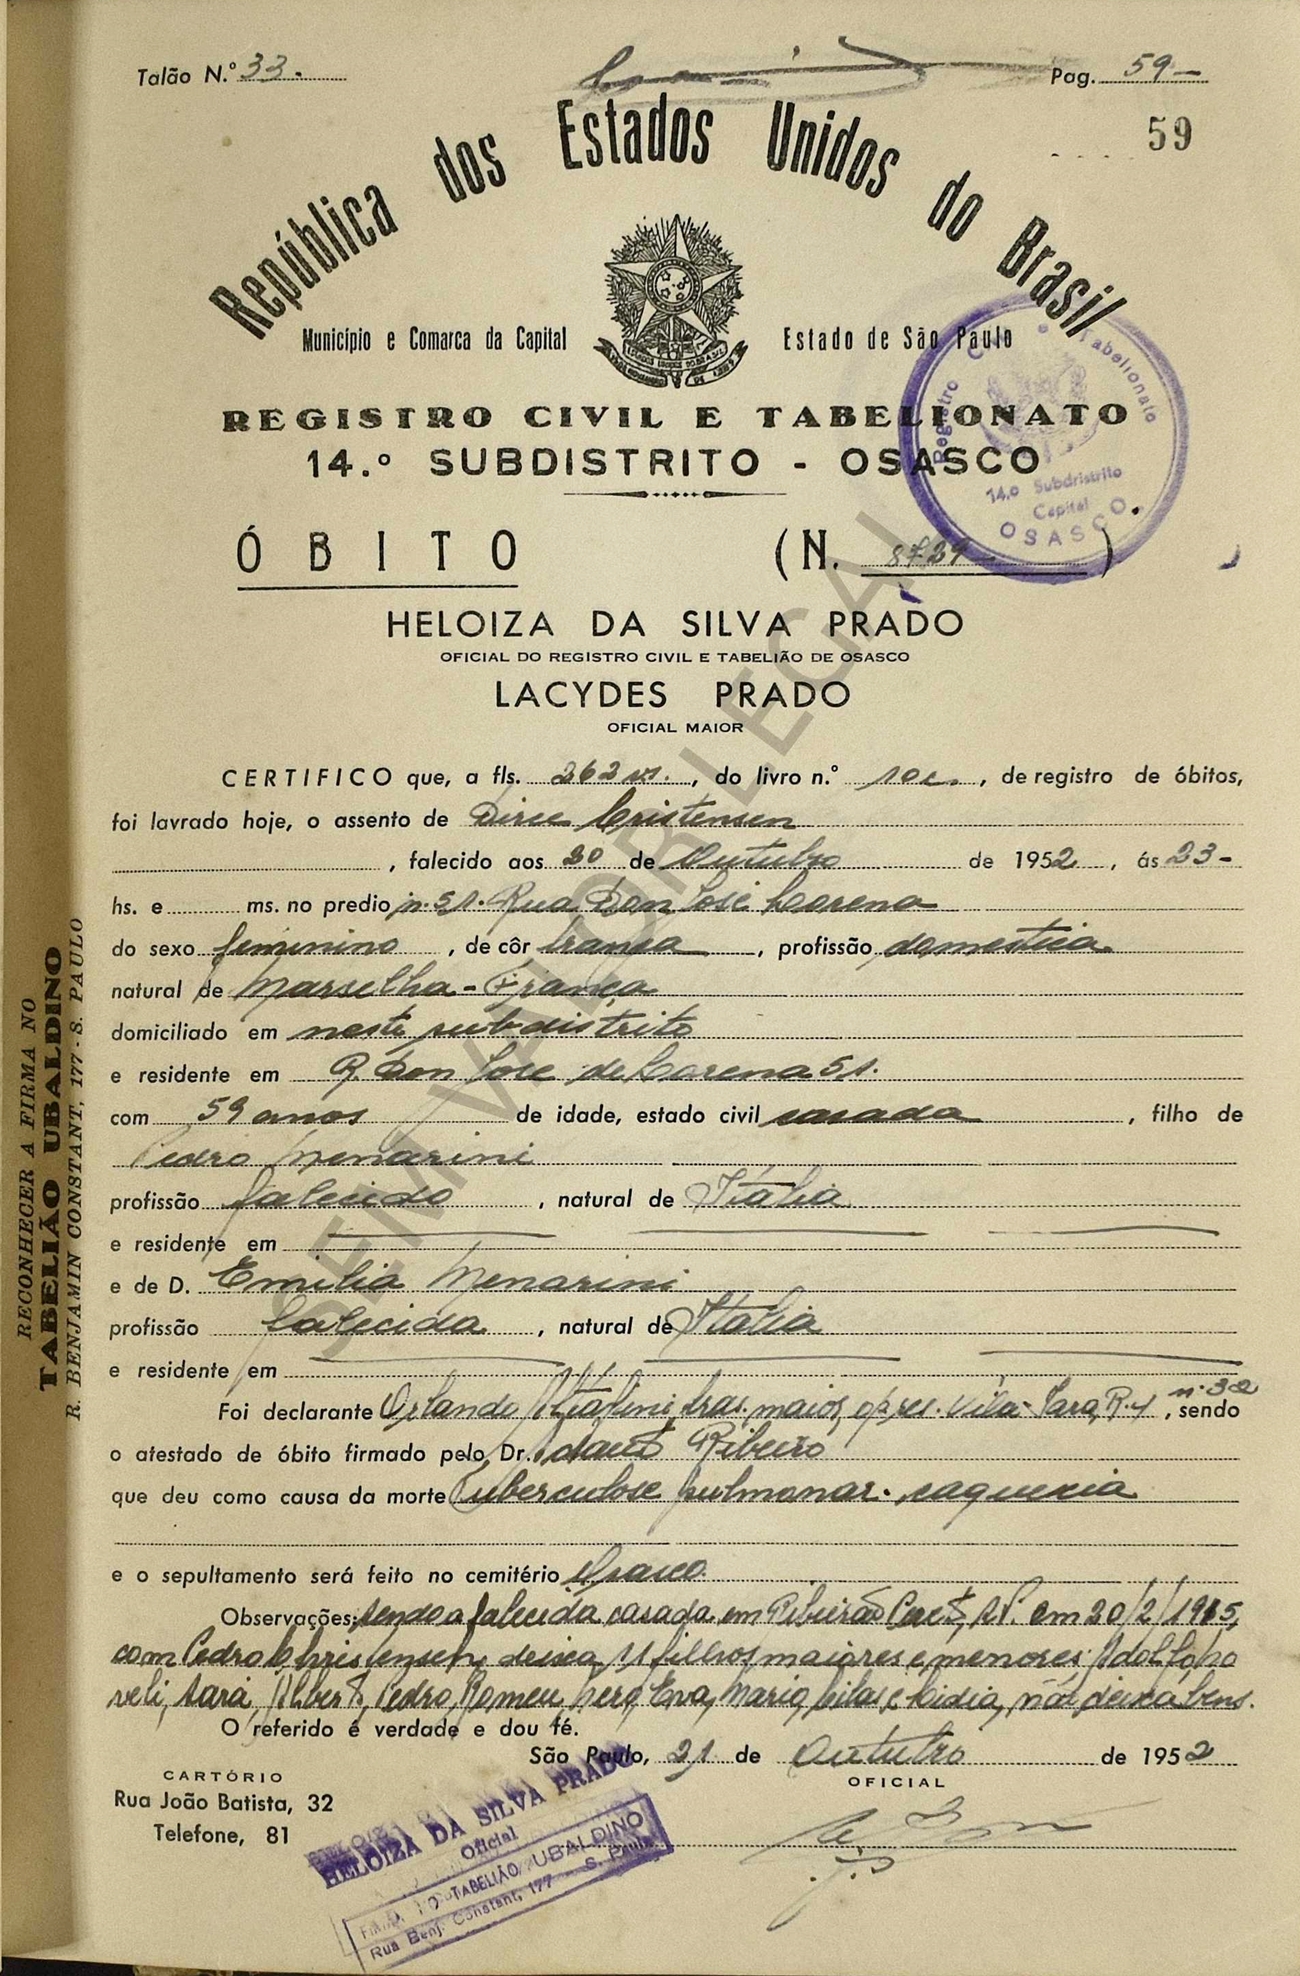 Talão N.º 33. Pag. 59-
59
República dos Estados Unidos do Brasil
Município e Comarca da Capital Estado de São Paulo
REGISTRO CIVIL E TABELIONATO
14.º SUBDISTRITO - OSASCO
Registro Civil e Tabelionato
14.º Subdristrito
Capital
OSASCO
ÓBITO (N. 8729)
HELOIZA DA SILVA PRADO
OFICIAL DO REGISTRO CIVIL E TABELIÃO DE OSASCO
LACYDES PRADO
OFICIAL MAIOR
CERTIFICO que, a fls. 262 vs., do livro n.º 10c., de registro de óbitos,
foi lavrado hoje, o assento de Dirce Cristensen
, falecido aos 20 de Outubro de 1952, ás 23-
hs. e ms. no predio n. 51. Rua Don José Lorena
do sexo feminino, de côr branca, profissão domestica
natural de Marselha - França
domiciliado em neste subdistrito
e residente em R. Don Jose de Lorena 51.
com 59 anos de idade, estado civil casada, filho de
Pedro Menarini
profissão falecido, natural de Itália
e residente em
e de D. Emilia Menarini
profissão falecida, natural de Italia
e residente em
Foi declarante Orlando bras. maior, res. Vila Sara, R. n.º 32, sendo
o atestado de óbito firmado pelo Dr. Ribeiro
que deu como causa da morte Tuberculose pulmonar. caquexia
e o sepultamento será feito no cemitério Osasco.
Observações: sendo a falecida casada em Ribeirão Preto, S.P. em 20/2/1915,
com Pedro Christensen, deixa 11 filhos maiores e menores: Adolfo,
Sara, Albert, Pedro, Romeu, Eva, Mario, Silas e Lidia, não deixa bens.
O referido é verdade e dou fé.
São Paulo, 21 de Outubro de 1952
OFICIAL
CARTÓRIO
Rua João Batista, 32
Telefone, 81
HELOIZA DA SILVA PRADO
Oficial
TABELIÃO UBALDINO
Rua Benj. Constant, 177 - S. Paulo
RECONHECER A FIRMA NO
TABELIÃO UBALDINO
R. BENJAMIN CONSTANT, 177 - S. PAULO
SEM VALOR LEGAL